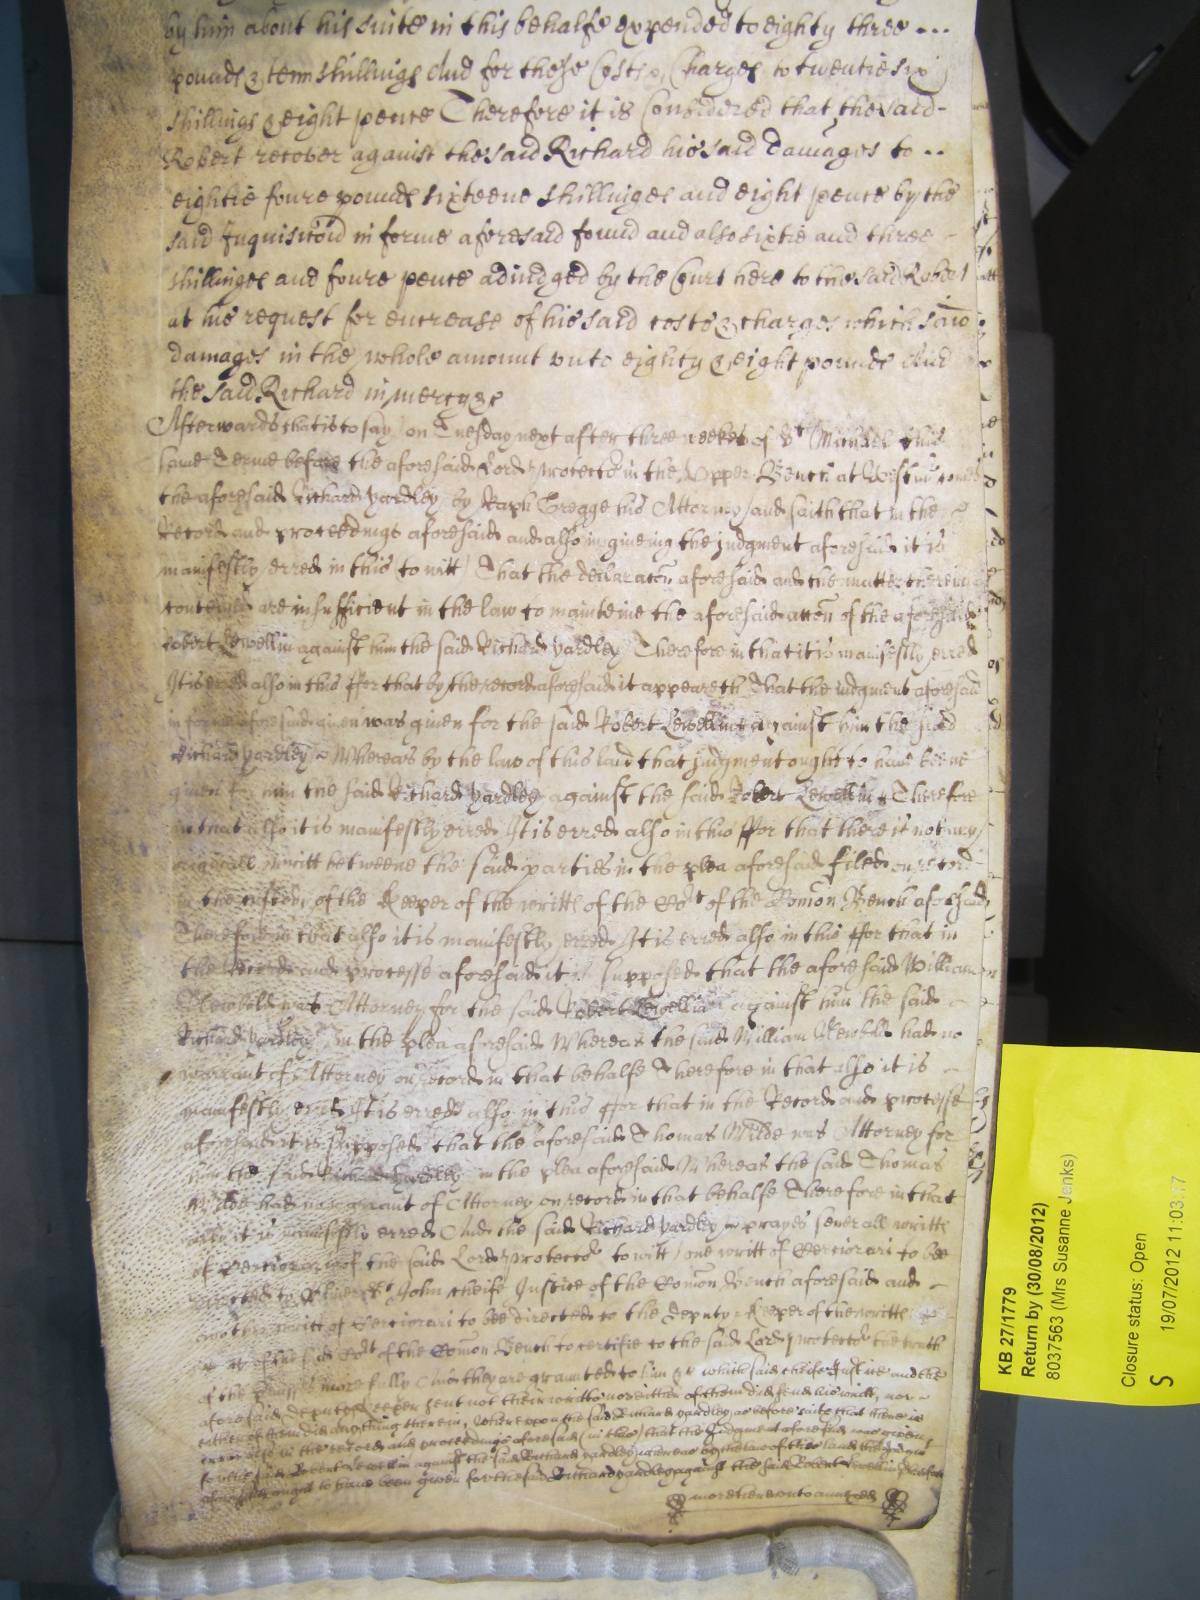 by him about his suite in this behalfe expended to eighty three ...
pounds & tenn shillings And for those Costs & Charges to twentie six
shillings & eight pence Therefore it is Considered that the said
Robert recover against the said Richard his said damages to ..
eightie foure pounds sixteene shillinges and eight pence by the
said Inquisicōn in forme aforesaid found and also sixtie and three
shillinges and foure pence adiudged by the Court here to the said Robert
at his request for encrease of his said costs & charges which said
damages in the whole amount vnto eighty & eight pounds And
the said Richard in mercy &c
Afterwards that is to say on Tuesday next after three weekes of St Michael this
same Terme before the aforesaid Lord Protector in the Upper Bench at Westmr comes
the aforesaid Richard Yardley by Raph Gregge his Attorney and saith that in the
Record and proceedings aforesaid and also in giveing the judgment aforesaid it is
manifestly erred in this to witt That the declaracōn aforesaid and the matter therein
conteined are insufficient in the law to mainteine the aforesaid accōn of the aforesaid
Robert Lewellin against him the said Richard Yardley Therefore in that it is manifestly erred
It is erred also in this ffor that by the record aforesaid it appeareth That the iudgment aforesaid
in forme aforesaid given was given for the said Robert Lewellin against him the said
Richard Yardley Whereas by the law of this land that judgment ought to have beene
given for him the said Richard Yardley against the said Robert Lewellin Therefore
in that also it is manifestly erred It is erred also in this ffor that there is not any
originall writt betweene the said parties in the plea aforesaid filed on record
in the custody of the Keeper of the writts of the Cort of the Comōn Bench aforesaid
Therefore in that also it is manifestly erred It is erred also in this ffor that in
the Record and processe aforesaid it is supposed that the aforesaid William
Newbold was Attorney for the said Robert Lewellin against him the said
Richard Yardley in the plea aforesaid Whereas the said William Newbold had no
warrant of Attorney on record in that behalfe Therefore in that also it is
manifestly erred It is erred also in this ffor that in the Record and processe
aforesaid it is supposed that the aforesaid Thomas Wilde was Attorney for
him the said Richard Yardley in the plea aforesaid Whereas the said Thomas
Wilde had no warrant of Attorney on record in that behalfe Therefore in that
also it is manifestly erred And the said Richard Yardley prayes severall writts
of Certiorari of the said Lord Protector to witt one writt of Certiorari to bee
directed to Oliver St John cheife Justice of the Comōn Bench aforesaid and
another writt of Certiorari to bee directed to the deputy Keeper of the writts
of the said Cort of the Comōn Bench to certifie to the said Lord Protector the truth
of the premisses more fully And they are graunted to him &c which said cheife Justice and the
aforesaid deputy Keeper sent not their writts nor either of them did send his writt, nor
either of them did any thing therein, Whereupon the said Richard Yardley as before saith that there is
error also in the records and proceedings aforesaid (in this) that the Judgment aforesaid was given
for the said Robert Lewellin against the said Richard Yardley whereas by the law of this land the Judgmt
aforesaid ought to have been given for the said Richard Yardley against the said Robert Lewellin Therefore
more hereunto annexed
KB 27/1779
Return by (30/08/2012)
8037563 (Mrs Susanne Jenks)
Closure status: Open
S 19/07/2012 11:03:17